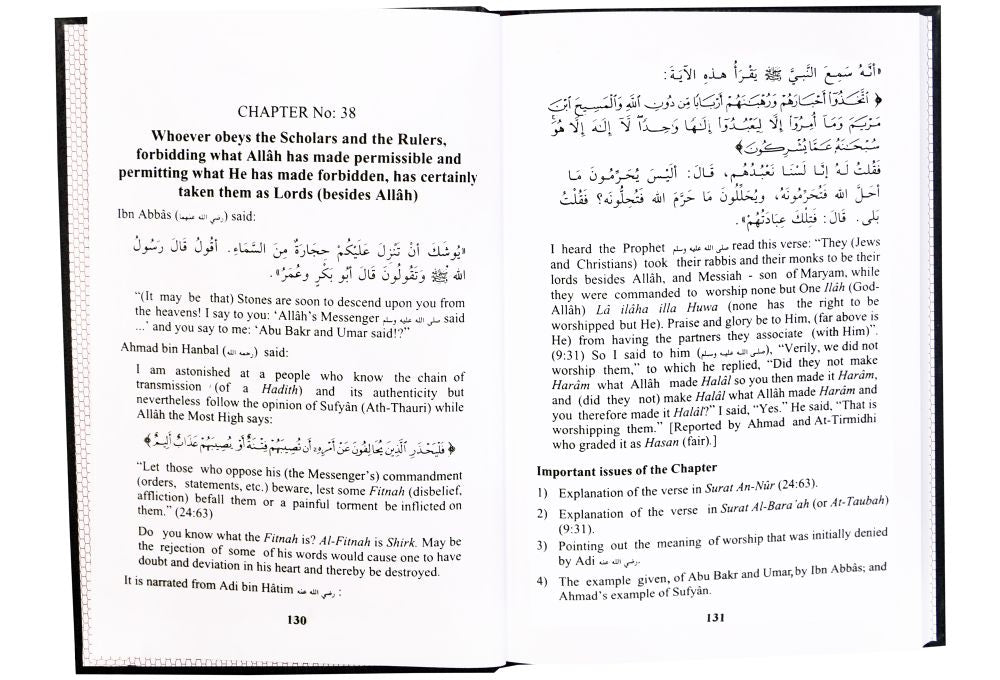 CHAPTER No: 38
Whoever obeys the Scholars and the Rulers,
forbidding what Allâh has made permissible and
permitting what He has made forbidden, has certainly
taken them as Lords (besides Allâh)
Ibn Abbâs (رضي الله عنهما) said:
«يُوشَكُ أَنْ تَنْزِلَ عَلَيْكُمْ حِجَارَةٌ مِنَ السَّمَاءِ. أَقُولُ قَالَ رَسُولُ
الله ﷺ وَتَقُولُونَ قَالَ أَبُو بَكْرٍ وَعُمَرُ».
“(It may be that) Stones are soon to descend upon you from
the heavens! I say to you: ‘Allâh’s Messenger صلى الله عليه وسلم said
...’ and you say to me: ‘Abu Bakr and Umar said!?”
Ahmad bin Hanbal (رحمه الله) said:
I am astonished at a people who know the chain of
transmission (of a Hadith) and its authenticity but
nevertheless follow the opinion of Sufyân (Ath-Thauri) while
Allâh the Most High says:
﴿فَلْيَحْذَرِ الَّذِينَ يُخَالِفُونَ عَنْ أَمْرِهِ أَن تُصِيبَهُمْ فِتْنَةٌ أَوْ يُصِيبَهُمْ عَذَابٌ أَلِيمٌ﴾
“Let those who oppose his (the Messenger’s) commandment
(orders, statements, etc.) beware, lest some Fitnah (disbelief,
affliction) befall them or a painful torment be inflicted on
them.” (24:63)
Do you know what the Fitnah is? Al-Fitnah is Shirk. May be
the rejection of some of his words would cause one to have
doubt and deviation in his heart and thereby be destroyed.
It is narrated from Adi bin Hâtim رضي الله عنه :
130
«أَنَّهُ سَمِعَ النَّبِيَّ ﷺ يَقْرَأُ هذِهِ الآيَةَ:
﴿اتَّخَذُوا أَحْبَارَهُمْ وَرُهْبَانَهُمْ أَرْبَابًا مِّن دُونِ اللَّهِ وَالْمَسِيحَ ابْنَ
مَرْيَمَ وَمَا أُمِرُوا إِلَّا لِيَعْبُدُوا إِلَٰهًا وَاحِدًا لَّا إِلَٰهَ إِلَّا هُوَ
سُبْحَانَهُ عَمَّا يُشْرِكُونَ﴾
فَقُلْتُ لَهُ إِنَّا لَسْنَا نَعْبُدُهُم، قَالَ: أَلَيْسَ يُحَرِّمُونَ مَا
أَحَلَّ الله فَتُحَرِّمُونَهُ، وَيُحَلِّلُونَ مَا حَرَّمَ الله فَتُحِلُّونَه؟ فَقُلْتُ
بَلَى. قَالَ: فَتِلْكَ عِبَادَتُهُمْ».
I heard the Prophet صلى الله عليه وسلم read this verse: “They (Jews
and Christians) took their rabbis and their monks to be their
lords besides Allâh, and Messiah - son of Maryam, while
they were commanded to worship none but One Ilâh (God-
Allâh) Lâ ilâha illa Huwa (none has the right to be
worshipped but He). Praise and glory be to Him, (far above is
He) from having the partners they associate (with Him)”.
(9:31) So I said to him (صلى الله عليه وسلم), “Verily, we did not
worship them,” to which he replied, “Did they not make
Harâm what Allâh made Halâl so you then made it Harâm,
and (did they not) make Halâl what Allâh made Harâm and
you therefore made it Halâl?” I said, “Yes.” He said, “That is
worshipping them.” [Reported by Ahmad and At-Tirmidhi
who graded it as Hasan (fair).]
Important issues of the Chapter
1) Explanation of the verse in Surat An-Nûr (24:63).
2) Explanation of the verse in Surat Al-Bara’ah (or At-Taubah)
(9:31).
3) Pointing out the meaning of worship that was initially denied
by Adi رضي الله عنه.
4) The example given, of Abu Bakr and Umar, by Ibn Abbâs; and
Ahmad’s example of Sufyân.
131